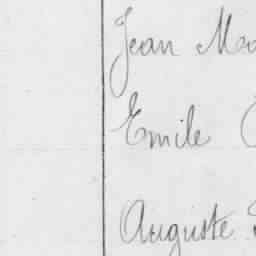 Jean
Emile
Auguste